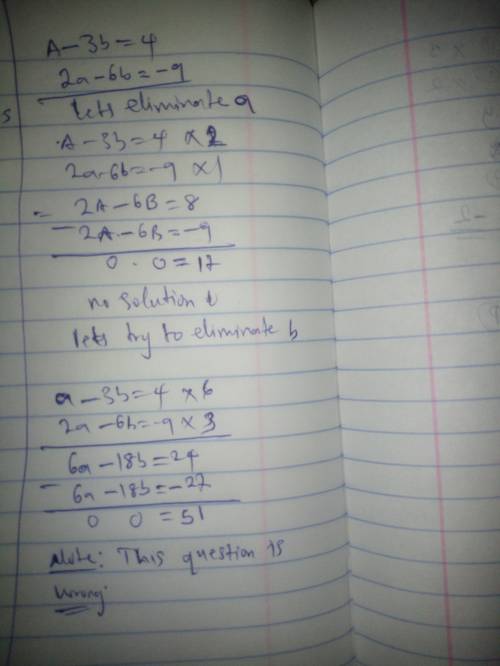 A-3b=4
2a-6b=-9
s lets eliminate a
A-3b=4 x2
2a-6b=-9 x1
= 2A-6B=8
- 2A-6B=-9
0 . 0=17
no solution
lets try to eliminate b
a-3b=4 x6
2a-6b=-9 x3
6a-18b=24
- 6a-18b=-27
0 0 = 51
Note: This question is
wrong.